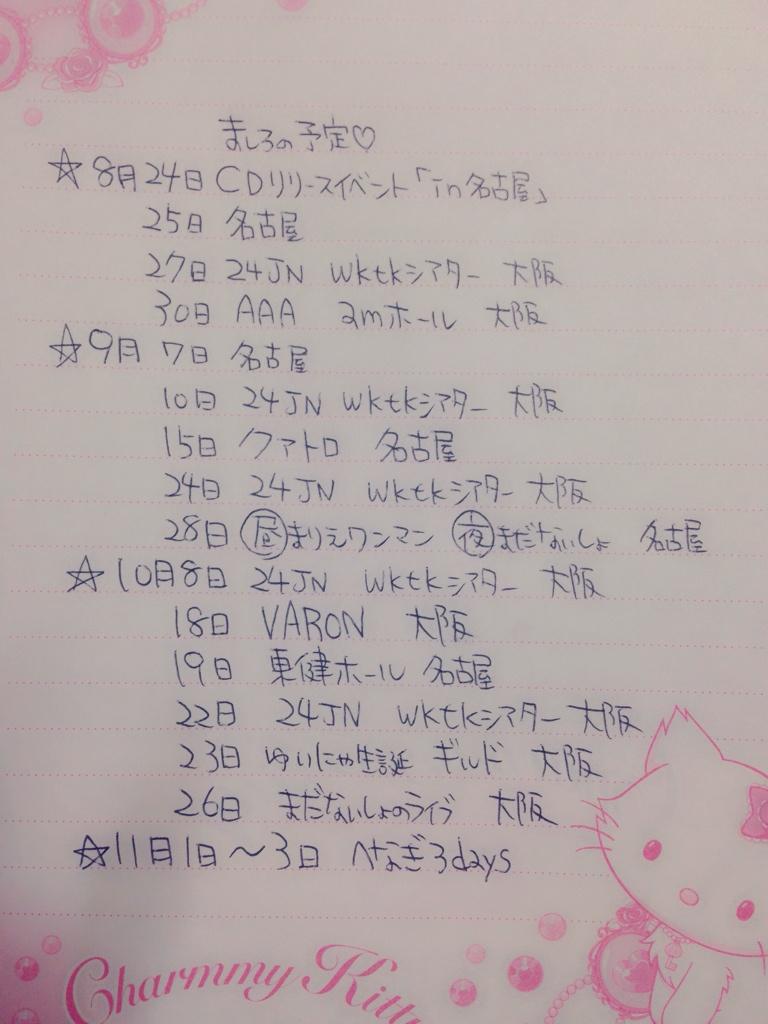 ましろの予定♡
☆8月24日 CDリリースイベント「in名古屋」
25日 名古屋
27日 24JN wktkシアター 大阪
30日 AAA amホール 大阪
☆9月 7日 名古屋
10日 24JN wktkシアター 大阪
15日 クアトロ 名古屋
24日 24JN wktkシアター 大阪
28日 昼まりえワンマン 夜まだないしょ 名古屋
☆10月8日 24JN wktkシアター 大阪
18日 VARON 大阪
19日 東健ホール 名古屋
22日 24JN wktkシアター 大阪
23日 ゆいにゃ生誕 ギルド 大阪
26日 まだないしょのライブ 大阪
☆11月1日〜3日 へなぎ3days
Charmmy Kitty